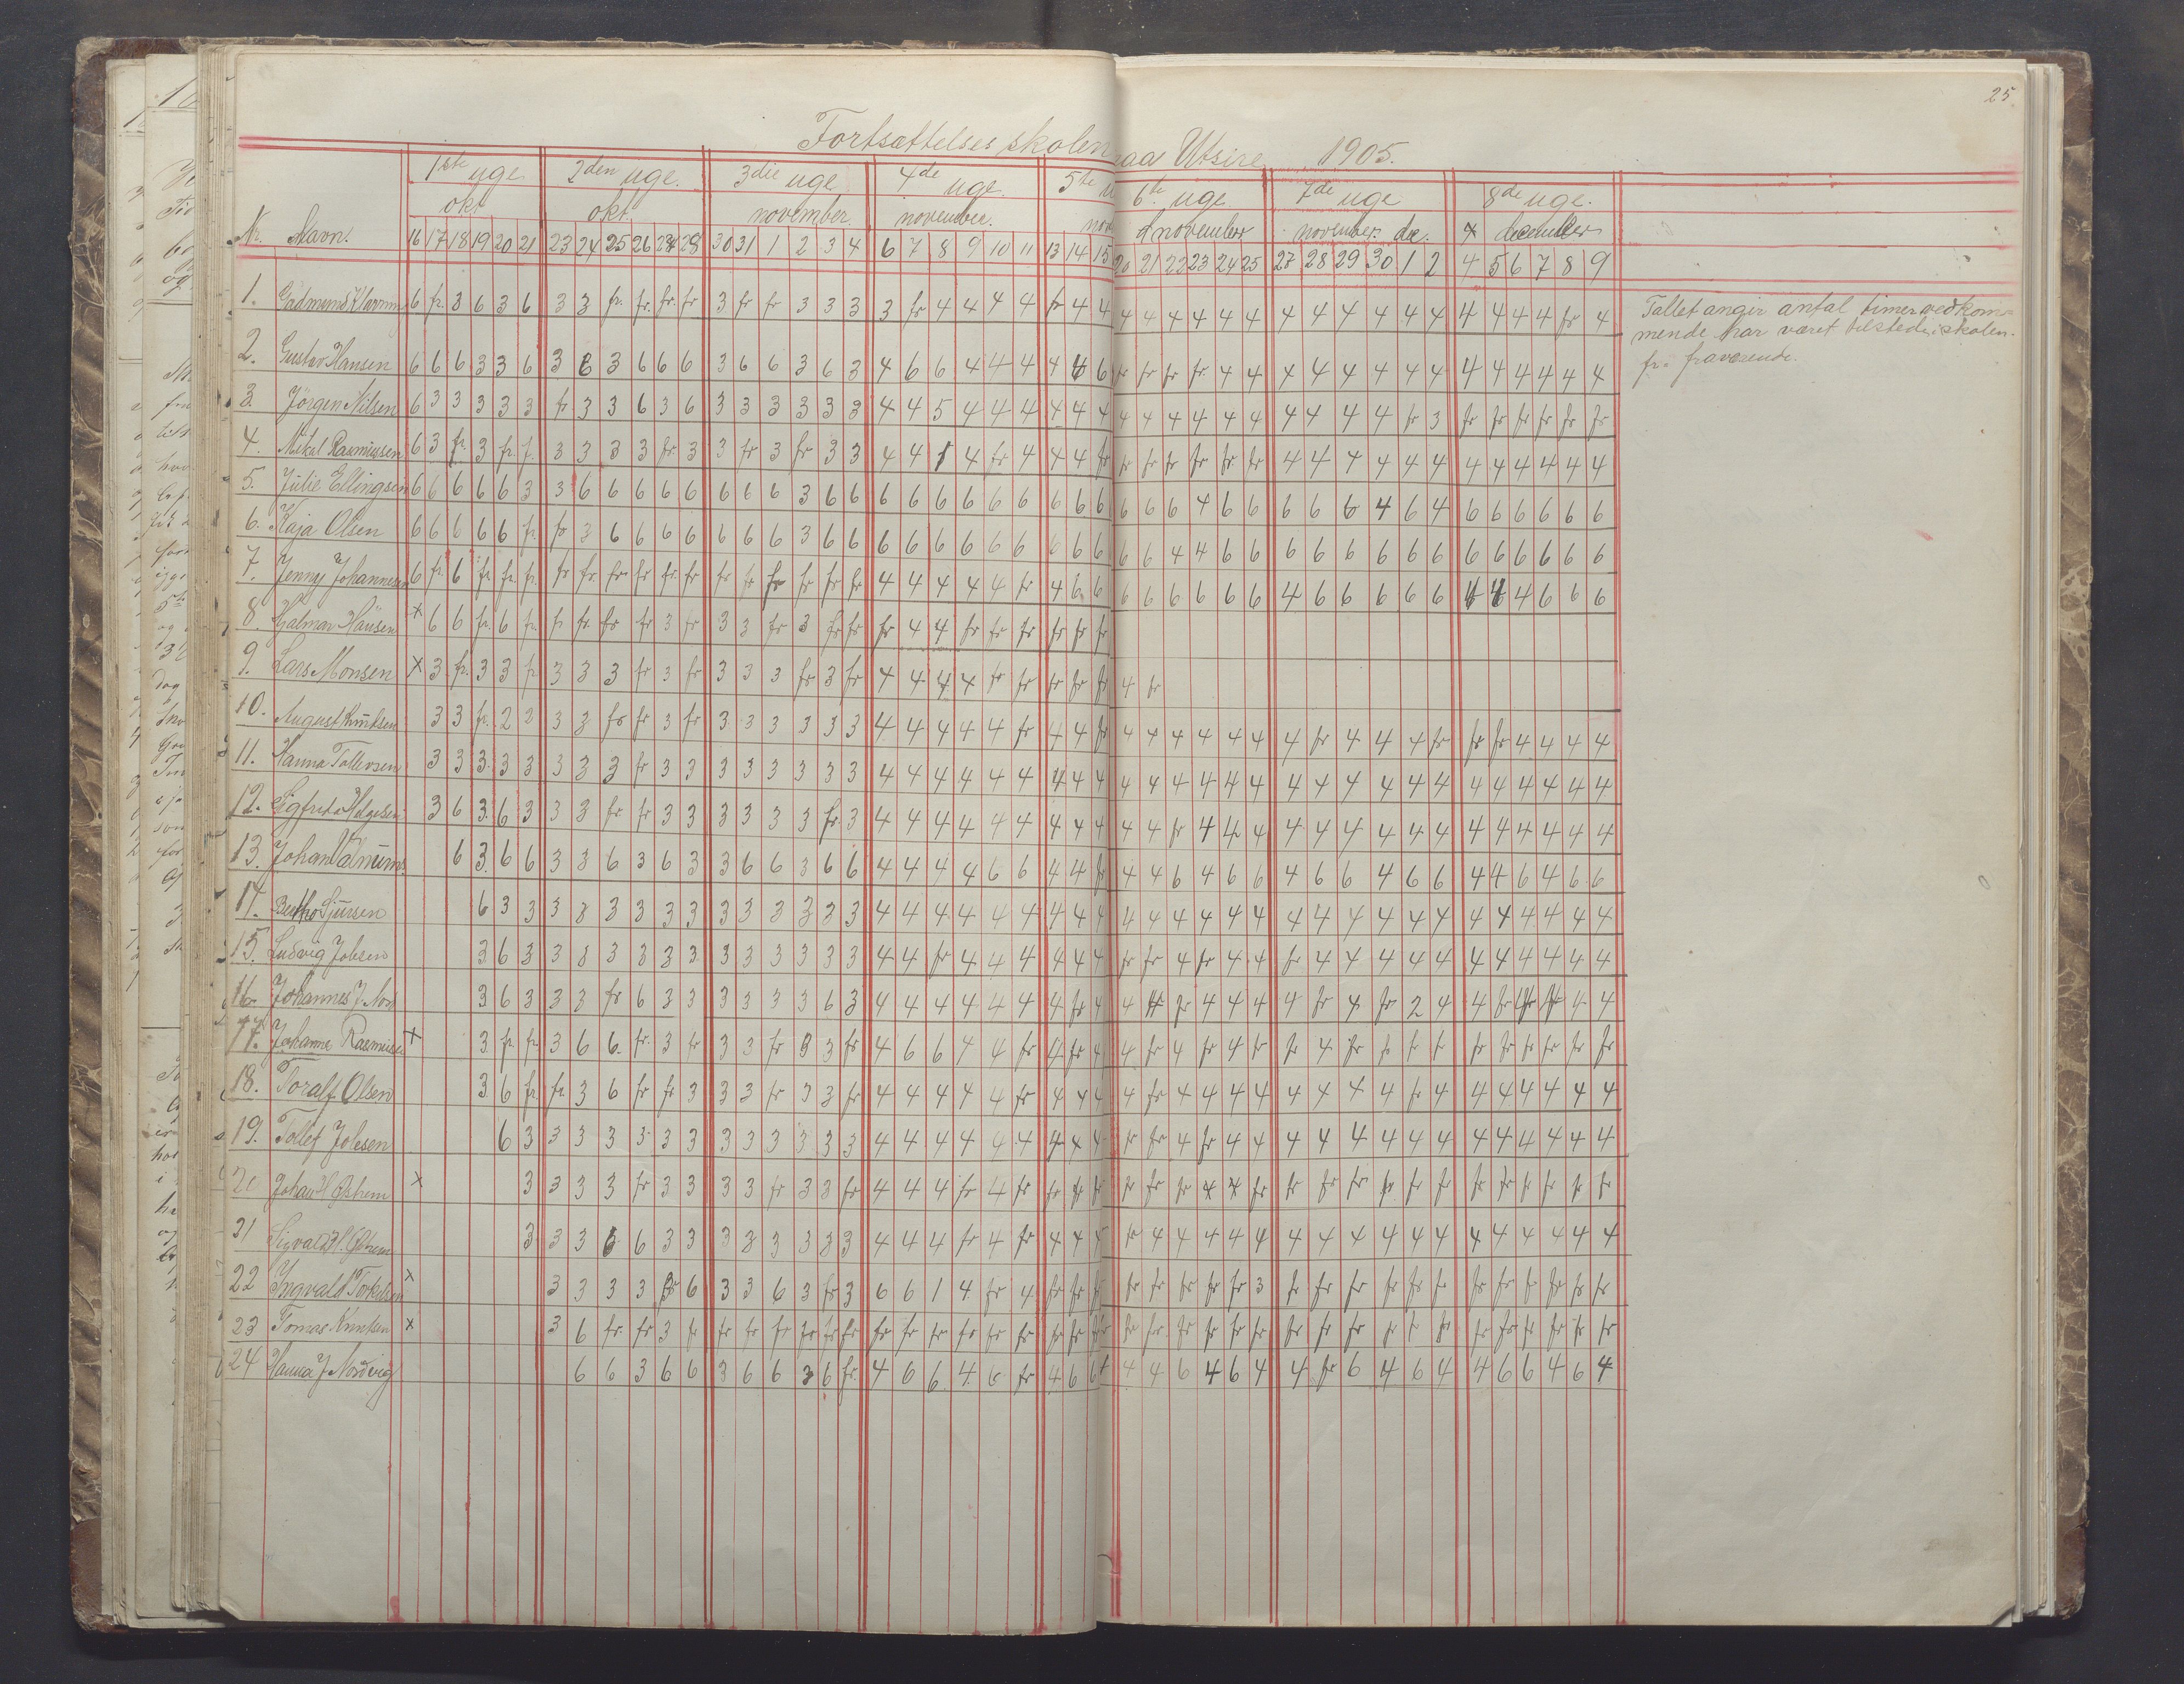 25
Fortsættelses skolen paa Utsire 1905.
1ste uge 2den uge. 3die uge 4de uge. 5te u 6te uge 7de uge 8de uge.
okt okt. november. november. nov november november. dec. december
Nr. Navn. 16 17 18 19 20 21 23 24 25 26 27 28 30 31 1 2 3 4 6 7 8 9 10 11 13 14 15 20 21 22 23 24 25 27 28 29 30 1 2 4 5 6 7 8 9
1. 6 fr. 3 6 3 6 3 3 fr. fr. fr. fr 3 fr fr 3 3 3 3 fr 4 4 4 4 fr 4 4 4 4 4 4 4 4 4 4 4 4 4 4 4 4 4 4 fr 4
Tallet angir antal timer vedkom-
mende har været tilstede i skolen.
fr. fraværende.
2. Gustav Hansen 6 6 6 3 3 6 3 6 3 6 6 6 3 6 6 3 6 3 4 6 6 4 4 4 4 4 6 fr fr fr fr 4 4 4 4 4 4 4 4 4 4 4 4 4 4
3. Jörgen Nilsen 6 3 3 3 3 3 fr 3 3 6 3 6 3 3 3 3 3 3 4 4 5 4 4 4 4 4 4 4 4 4 4 4 4 4 4 4 4 fr 3 fr fr fr fr fr fr
4. Mikal Rasmussen 6 3 fr. 3 fr. f. 3 3 3 3 fr. 3 3 fr 3 fr 3 3 4 4 1 4 fr 4 4 4 fr fr fr fr fr fr fr 4 4 4 4 4 4 4 4 4 4 4 4
5. Julie Ellingsen 6 6 6 6 6 3 3 6 6 6 6 6 6 6 6 3 6 6 6 6 6 6 6 6 6 6 6 6 6 6 4 6 6 6 6 6 4 6 4 6 6 6 6 6 6
6. Kaja Olsen 6 6 6 6 6 fr. fr 3 6 6 6 6 6 6 6 3 6 6 6 6 6 6 6 6 6 6 6 6 6 4 4 6 6 6 6 6 6 6 6 6 6 6 6 6 6
7. Jenny Johannesen 6 fr. 6 fr fr. fr. fr fr. fr fr fr. fr fr fr fr fr fr fr 4 4 4 4 4 fr 4 6 6 6 6 6 6 6 6 4 6 6 6 6 6 4 4 4 6 6 6
8. Hjalmar Hansen x 6 6 fr. 6 fr. fr fr. fr fr 3 fr 3 3 fr 3 fr fr fr 4 4 fr fr fr fr fr fr
9. Lars Monsen x 3 fr. 3 3 fr 3 3 3 fr 3 fr 3 3 3 fr 3 fr 4 4 4 4 fr fr fr fr fr 4 fr
10. August Knutsen 3 3 fr. 2 2 3 3 fr fr 3 fr 3 3 3 3 3 3 4 4 4 4 4 fr 4 4 fr 4 4 4 4 4 4 4 fr 4 4 4 fr fr fr 4 4 4 4
11. Hanna Tollevsen 3 3 3 3 3 3 3 3 fr 3 3 3 3 3 3 3 3 4 4 4 4 4 4 4 4 4 4 4 4 4 4 4 4 4 4 4 4 4 4 4 4 4 4 4
12. Sigfrid Helgesen 3 6 3 6 3 3 3 fr fr 3 3 3 3 3 3 fr 3 4 4 4 4 4 4 4 4 4 4 4 fr 4 4 4 4 4 4 4 4 4 4 4 4 4 4 4
13. 6 3 6 6 3 3 6 3 6 3 3 6 6 3 6 6 4 4 4 4 6 6 4 4 fr 4 4 6 4 6 6 4 6 6 4 6 6 4 4 6 4 6 6
14. Sjursen 6 3 3 3 3 3 3 3 3 3 3 3 3 3 3 4 4 4 4 4 4 4 4 4 4 4 4 4 4 4 4 4 4 4 4 4 4 4 4 4 4 4
15. Ludvig Jobsen 3 6 3 3 3 3 3 3 3 3 3 3 3 3 3 4 4 fr 4 4 4 4 4 4 fr fr 4 fr 4 4 fr 4 4 4 4 4 4 4 4 4 4 4
16. Johannes J. 3 6 3 3 3 fr 6 3 3 3 3 3 3 6 3 4 4 4 4 4 4 4 fr 4 4 fr 4 4 4 4 fr 4 fr 2 4 4 fr 4 4
17. Johanne Rasmussen x 3 fr. fr. 3 6 6 fr. 3 fr 3 3 fr 3 3 fr 4 6 6 4 4 fr 4 fr 4 4 fr 4 fr 4 fr fr 4 fr fr fr fr fr fr fr fr fr fr
18. Toralf Olsen 3 6 fr. fr. 3 6 fr fr 3 3 3 fr 3 3 fr 4 4 4 4 4 fr 4 4 4 4 fr 4 4 4 4 4 4 4 4 fr 4 4 4 4 4 4 4
19. Tollef Jobsen 6 3 3 3 3 3 3 3 3 3 3 3 3 3 4 4 4 4 4 4 4 4 4 fr fr 4 fr 4 4 4 4 4 4 4 4 4 4 4 4 4 4
20 Johan H Østrem x 3 3 3 3 fr 3 3 3 3 fr 3 3 fr 4 4 4 fr 4 fr fr fr fr fr fr fr 4 4 fr fr fr fr fr fr fr fr fr fr fr fr fr
21 Sigvald H. Østrem 3 3 3 6 6 3 3 3 3 3 3 3 3 4 4 4 fr 4 fr 4 4 4 fr 4 4 4 4 4 4 4 4 4 4 4 4 4 4 4 4 4
22 Ingvald Torkelsen x 3 3 3 3 fr 6 3 3 6 3 fr 3 6 6 1 4 fr 4 fr fr fr fr fr fr fr fr 3 fr fr fr fr fr fr fr fr fr fr fr fr
23 Tomas Knutsen x 3 6 fr. fr 3 fr fr fr fr fr fr fr fr fr fr fr fr fr fr fr fr fr fr fr fr fr fr fr fr fr fr fr fr fr fr fr fr fr fr
24 Hanna J Nordvig 6 6 3 6 6 3 6 6 3 6 fr. 4 6 6 4 6 fr 4 6 6 4 4 6 4 6 4 4 fr 6 4 6 4 4 6 6 4 6 4